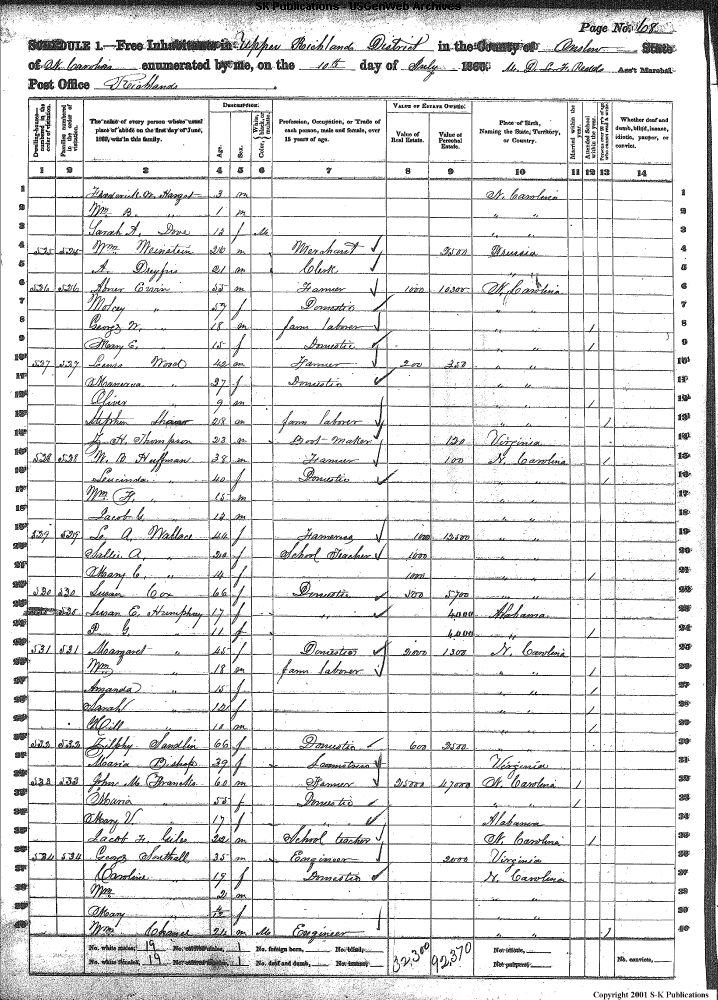 SK Publications - USGenWeb Archives
Page No. 68
SCHEDULE 1.—Free Inhabitants in Upper Richlands District in the County of Onslow State
of N. Carolina enumerated by me, on the 10th day of July 1860. Ass't Marshal.
Post Office Richlands
Dwelling-houses— numbered in the order of visitation. Families numbered in the order of visitation. The name of every person whose usual place of abode on the first day of June, 1860, was in this family. Description. Age. Sex. Color, White, black, or mulatto. Profession, Occupation, or Trade of each person, male and female, over 15 years of age. Value of Estate Owned. Value of Real Estate. Value of Personal Estate. Place of Birth, Naming the State, Territory, or Country. Married within the year. Attended School within the year. Whether deaf and dumb, blind, insane, idiotic, pauper, or convict.
1 2 3 4 5 6 7 8 9 10 11 12 13 14
1 3 m N. Carolina 1
2 Wm B. " 1 m " " 2
3 Sarah A. Dove 12 f M " " 3
4 525 Wm Weinstein m Merchant 2500 Prussia 4
5 A. Dreyfus 21 m Clerk " " 5
6 526 526 Abner Ervin 55 m Farmer 1000 10300 N. Carolina 6
7 " 57 f Domestic " " 7
8 George W. " 18 m farm laborer " " 8
9 Mary E. " 15 f Domestic " " 9
10 527 527 Wood 42 m Farmer 200 350 " " 10
11 Manerva " 27 f Domestic " " 11
12 Oliver " 9 m " " 12
13 Stephen 28 m farm laborer " " 13
14 H. Thompson 23 m Boot-maker 120 Virginia 14
15 528 528 W. B. Huffman 38 m Farmer 100 N. Carolina 15
16 Leucinda " 40 f Domestic " " 16
17 Wm F. " 15 m " " 17
18 Jacob C. " 12 m " " 18
19 529 529 A. Wallace 44 f 1000 12500 " " 19
20 Sallie A. " 20 f School Teacher 1000 " " 20
21 Mary C. " 14 f 1000 " " 21
22 530 530 Susan Cox 66 f Domestic 500 5700 " " 22
23 Susan E. Humphrey 17 f " 4,000 Alabama 23
24 G. " 11 f 4,000 " 24
25 531 531 Margaret " 45 f Domestic 2,000 1300 N. Carolina 25
26 Wm " 18 m farm laborer " " 26
27 Amanda " 15 f " " 27
28 Sarah " 12 f " " 28
29 Hill " 10 m " " 29
30 532 532 Zilphy Sandlin 66 f Domestic 600 2500 " " 30
31 Maria Bishop 39 f Seamstress Virginia 31
32 533 533 John M. Franks 60 m Farmer 25000 47000 N. Carolina 32
33 Maria " 55 f Domestic " " 33
34 Mary V. " 17 f " Alabama 34
35 Jacob F. Giles m School teacher N. Carolina 35
36 534 534 George Southall 35 m Engineer 2000 Virginia 36
37 Caroline " 19 f Domestic N. Carolina 37
38 Wm " 2 m " " 38
39 Mary " f " " 39
40 Wm Chance 24 m M Engineer " " 40
No. white males, 19 No. colored males, 1 No. foreign born, No. blind, 32,300 92,370 No. idiotic,
No. white females, 19 No. colored females, 1 No. deaf and dumb, No. insane, No. paupers, No. convicts,
Copyright 2001 S-K Publications